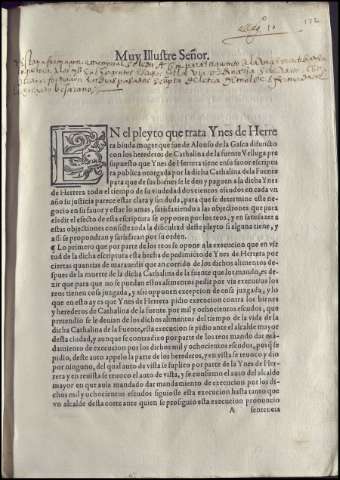 172
Muy Illustre Señor.
EN el pleyto que trata Ynes de Herre
ra biuda muger que fue de Alonso de la Gasca difuncto
con los herederos de Cathalina de la fuente Velluga pre
supuesto que Ynes de Herrera tiene en su fauor escriptu
ra publica otorgada por la dicha Cathalina de la Fuente
para que de sus bienes se le den y paguen a la dicha Ynes
de Herrera todo el tiempo de su viudedad dozientos escudos en cada vn
año su justicia parece estar clara y sin duda, para que se determine este
negocio en su fauor y estar los autos, satisfaziendo a las objectiones que para
eludir el efecto de esta escriptura se opponen por los reos, y en satisfazer a
estas objectiones consiste toda la dificultad deste pleyto si alguna tiene, y
a si se propondran y satisfaran por su orden.
¶ Lo primero que por parte de los reos se opone a la execucion que en vir
tud de la dicha escriptura esta hecha de pedimiento de Ynes de Herrera por
ciertas quantias de marauedis que an corrido de los dichos alimentos des
pues de la muerte de la dicha Cathalina de la fuente que los mando, es de
zir que para que no se puedan estos alimentos pedir por via executiua los
reos tienen cosa juzgada, y a si opponen excepcion de cosa juzgada, y lo
que en esto ay es que Ynes de Herrera pidio execucion contra los bienes
y herederos de Cathalina de la fuente por mil y ochocientos escudos, que
pretendio se le deuian de los dichos alimentos del tiempo de la vida de la
dicha Cathalina de la Fuente, esta execucion se pidio ante el alcalde mayor
desta ciudad, y aunque se contradixo por parte de los reos mando dar mã
damiento de execucion por los dichos mil y ochocientos escudos, por si se
pidio, deste auto appelo la parte de los herederos, y en vista se reuoco y dio
por ninguno, del qual auto de vista se suplico por parte de la Ynes de Her
rera y en reuista se reuoco el auto de vista, y se confirmo el auto del alcalde
mayor en que auia mandado dar mandamiento de execucion por los di
chos mil y ochocientos escudos siguio se esta execucion hasta tanto que
vn alcalde desta corte ante quien se prosiguio esta execucion pronuncio
A sentencia